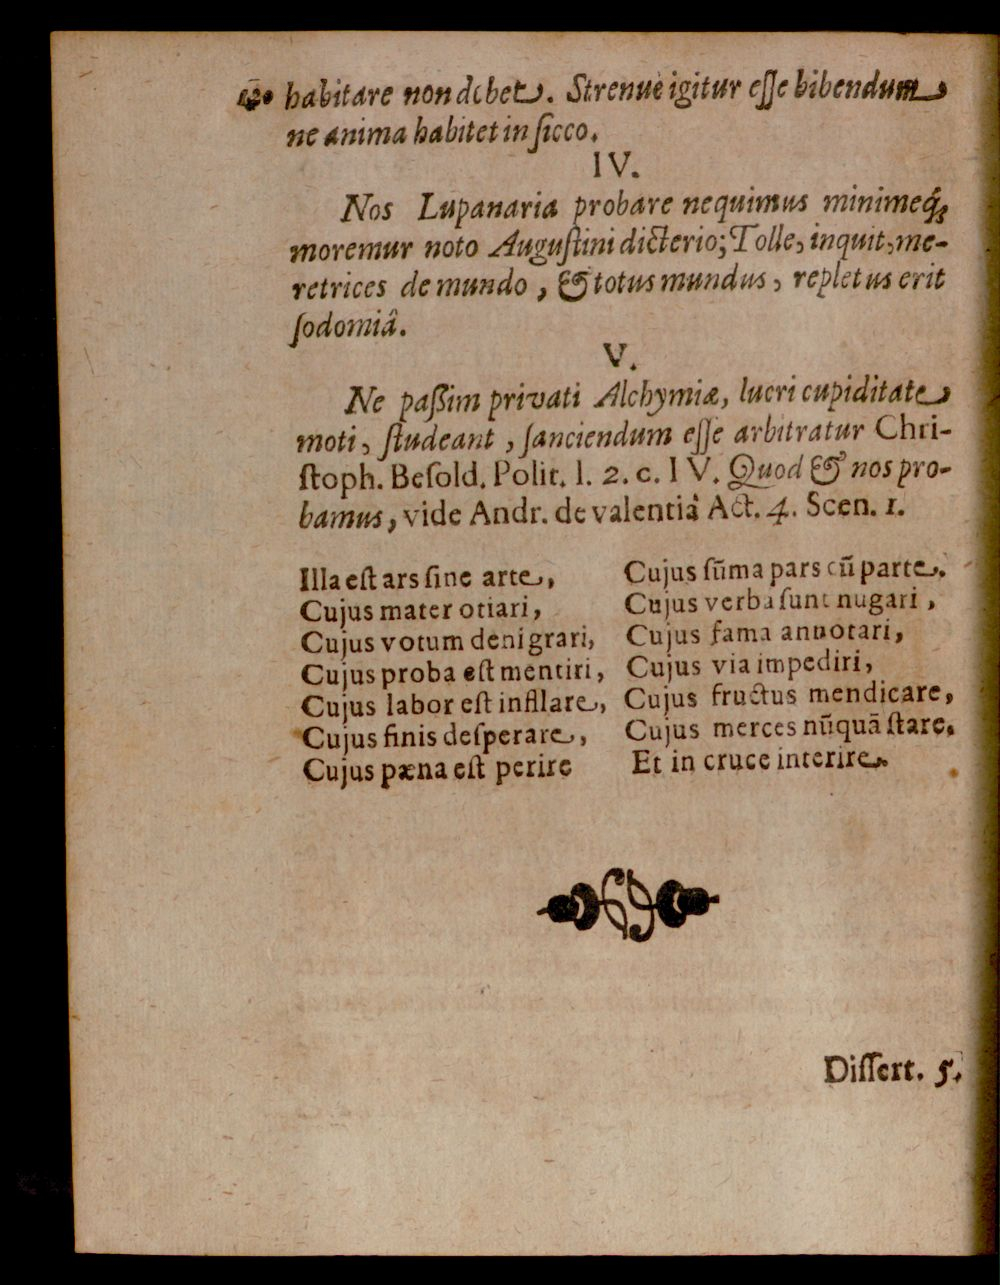 habitare non debet. Strenuè igitur eſſe bibendum
ne anima habitet in ſicco.
IV.
Nos Lupanaria probare nequimus minimeq́;
moremur noto Auguſtini dicterio; Tolle, inquit, me-
retrices de mundo, & totus mundus, repletus erit
ſodomiâ.
V.
Ne paßim privati Alchymiæ, lucri cupiditate
moti, ſtudeant, ſanciendum eſſe arbitratur Chri-
ſtoph. Beſold. Polit. l. 2. c. IV. Quod & nos pro-
bamus, vide Andr. de valentiâ Act. 4. Scen. 1.
Illa eſt ars ſine arte,
Cujus mater otiari,
Cujus votum denigrari,
Cujus proba eſt mentiri,
Cujus labor eſt infllare,
Cujus finis deſperare,
Cujus pæna eſt perire
Cujus ſūma pars cū parte.
Cujus verba ſunt nugari,
Cujus fama annotari,
Cujus via impediri,
Cujus fructus mendicare,
Cujus merces nūquā ſtare.
Et in cruce interire.
Diſſert. 5.